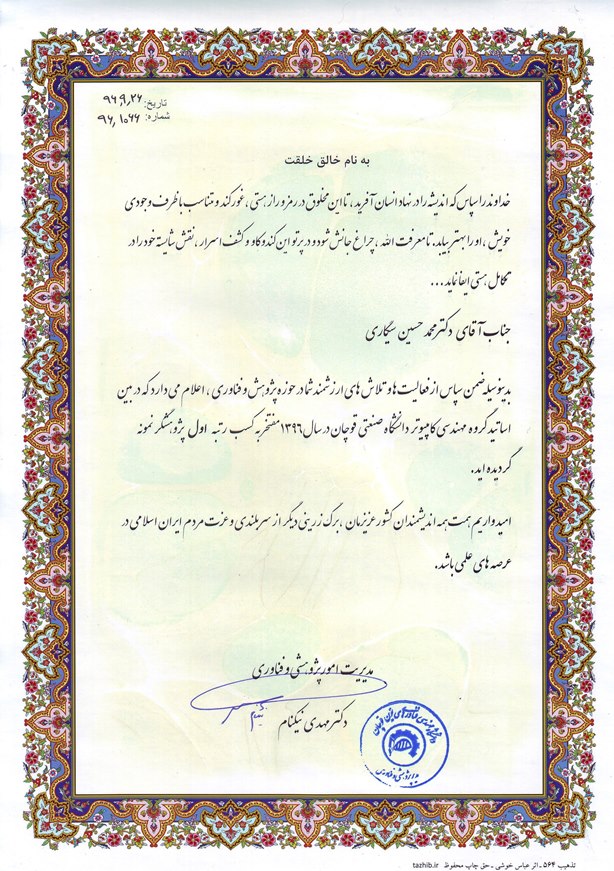 تاریخ: ۹۶٫۹٫۲۶
شماره: ۹۶٫۱۰۶۶
به نام خالق خلقت
خداوند را سپاس که اندیشه را در نهاد انسان آفرید، تا این مخلوق در رمز و راز هستی، غور کند و متناسب با ظرف وجودی
خویش، او را بهتر بیابد. تا معرفت الله، چراغ جانش شود و در پرتو این کندوکاو و کشف اسرار، نقش شایسته خود را در
تکامل هستی ایفا نماید...
جناب آقای دکتر محمد حسین سیگاری
بدینوسیله ضمن سپاس از فعالیت ها و تلاش های ارزشمند شما در حوزه پژوهش و فناوری، اعلام می دارد که در بین
اساتید گروه مهندسی کامپیوتر دانشگاه صنعتی قوچان در سال ۱۳۹۶ مفتخر به کسب رتبه اول پژوهشگر نمونه
گردیده اید.
امیدواریم همت همه اندیشمندان کشور عزیزمان، برگ زرینی دیگر از سربلندی و عزت مردم ایران اسلامی در
عرصه های علمی باشد.
مدیریت امور پژوهشی و فناوری
دکتر مهدی نیکنام
تذهیب ۵۶۴ ـ اثر عباس خوشی ـ حق چاپ محفوظ tazhib.ir